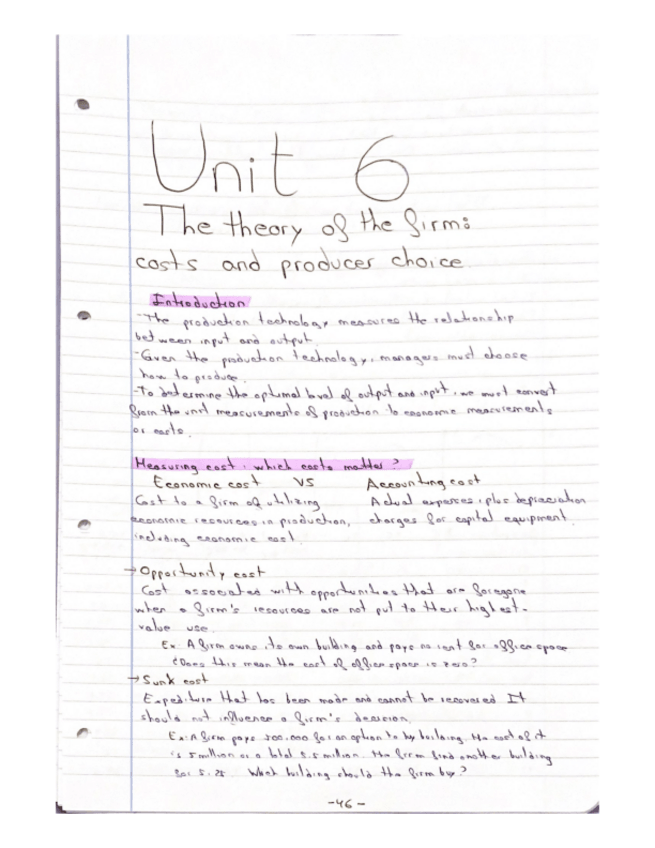 Unit 6
The theory of the firm:
costs and producer choice
Introduction
-The production technology measures the relationship
between input and output.
-Given the production technology, managers must choose
how to produce.
-To determine the optimal level of output and input, we must convert
from the unit measurements of production to economic measurements
or costs.
Measuring cost: which costs matter?
Economic cost VS Accounting cost
Cost to a firm of utilizing Actual expenses, plus depreciation
economic resources in production, charges for capital equipment
including economic cost.
→Opportunity cost
Cost associated with opportunities that are foregone
when a firm's resources are not put to their highest-
value use.
Ex: A firm owns its own building and pays no rent for office space
¿Does this mean the cost of office space is zero?
→Sunk cost
Expediture that has been made and cannot be recovered It
should not influence a firm's decision.
Ex: A firm pays 500.000 for an option to by building. the cost of it
is 5 million or a total 5.5 million. the firm find another building
for 5.25 What building should the firm buy?
-46-